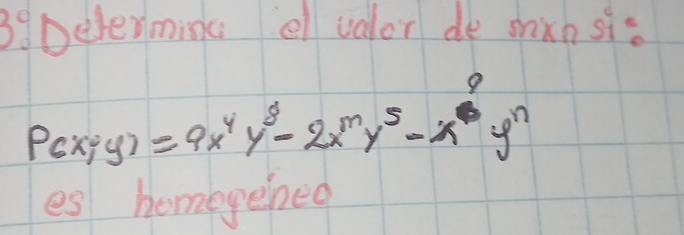 3° Determina el valor de mxn si:
P(x;y) = 9x⁴y⁸ - 2xᵐy⁵ - x⁹yⁿ
es homogeneo